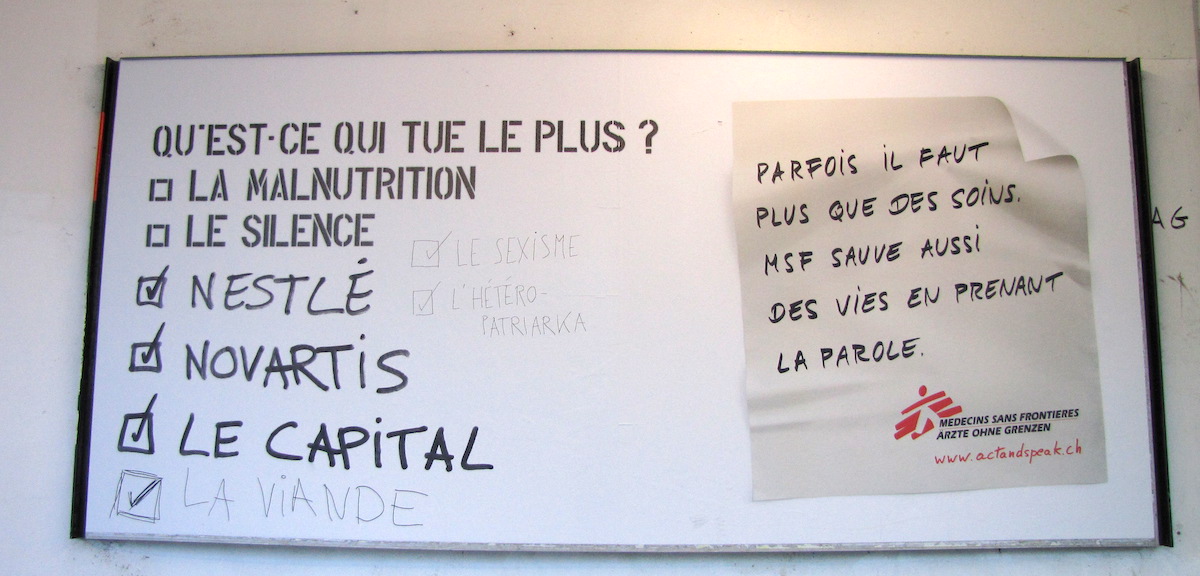 QU'EST-CE QUI TUE LE PLUS ?
LA MALNUTRITION
LE SILENCE
NESTLÉ
NOVARTIS
LE CAPITAL
LA VIANDE
LE SEXISME
L'HÉTÉRO-
PATRIARKA
PARFOIS IL FAUT
PLUS QUE DES SOINS.
MSF SAUVE AUSSI
DES VIES EN PRENANT
LA PAROLE.
MEDECINS SANS FRONTIERES
ÄRZTE OHNE GRENZEN
www.actandspeak.ch
AG